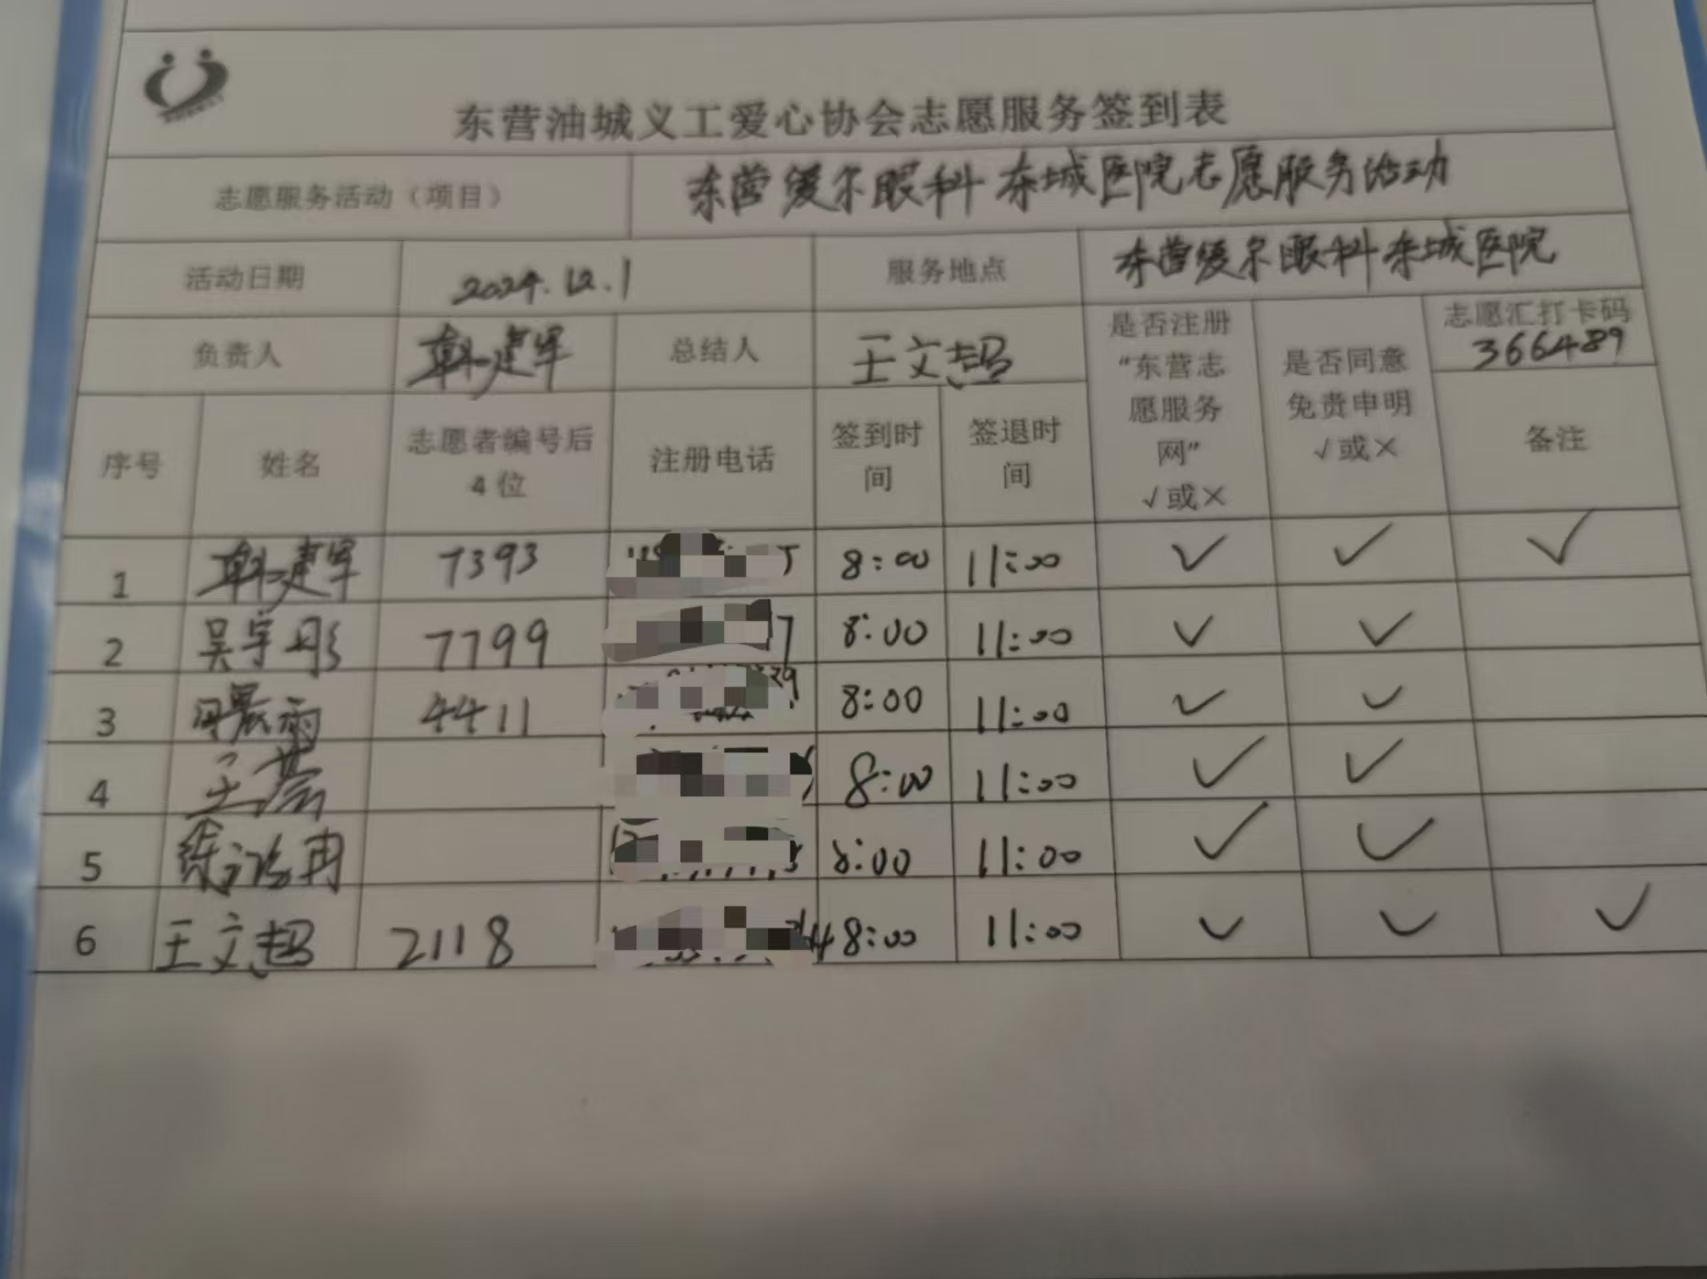 东营油城义工爱心协会志愿服务签到表
志愿服务活动（项目） 东营爱尔眼科东城医院志愿服务活动
活动日期 2024.12.1 服务地点 东营爱尔眼科东城医院
负责人 韩建军 总结人 王文超 是否注册“东营志愿服务网”√或× 是否同意免责申明√或× 志愿汇打卡码 366489
序号 姓名 志愿者编号后4位 注册电话 签到时间 签退时间 备注
1 韩建军 7393 8:00 11:00 √ √ √
2 吴宇彤 7799 8:00 11:00 √ √
3 晨雨 4411 8:00 11:00 √ √
4 8:00 11:00 √ √
5 8:00 11:00 √ √
6 王文超 2118 8:00 11:00 √ √ √